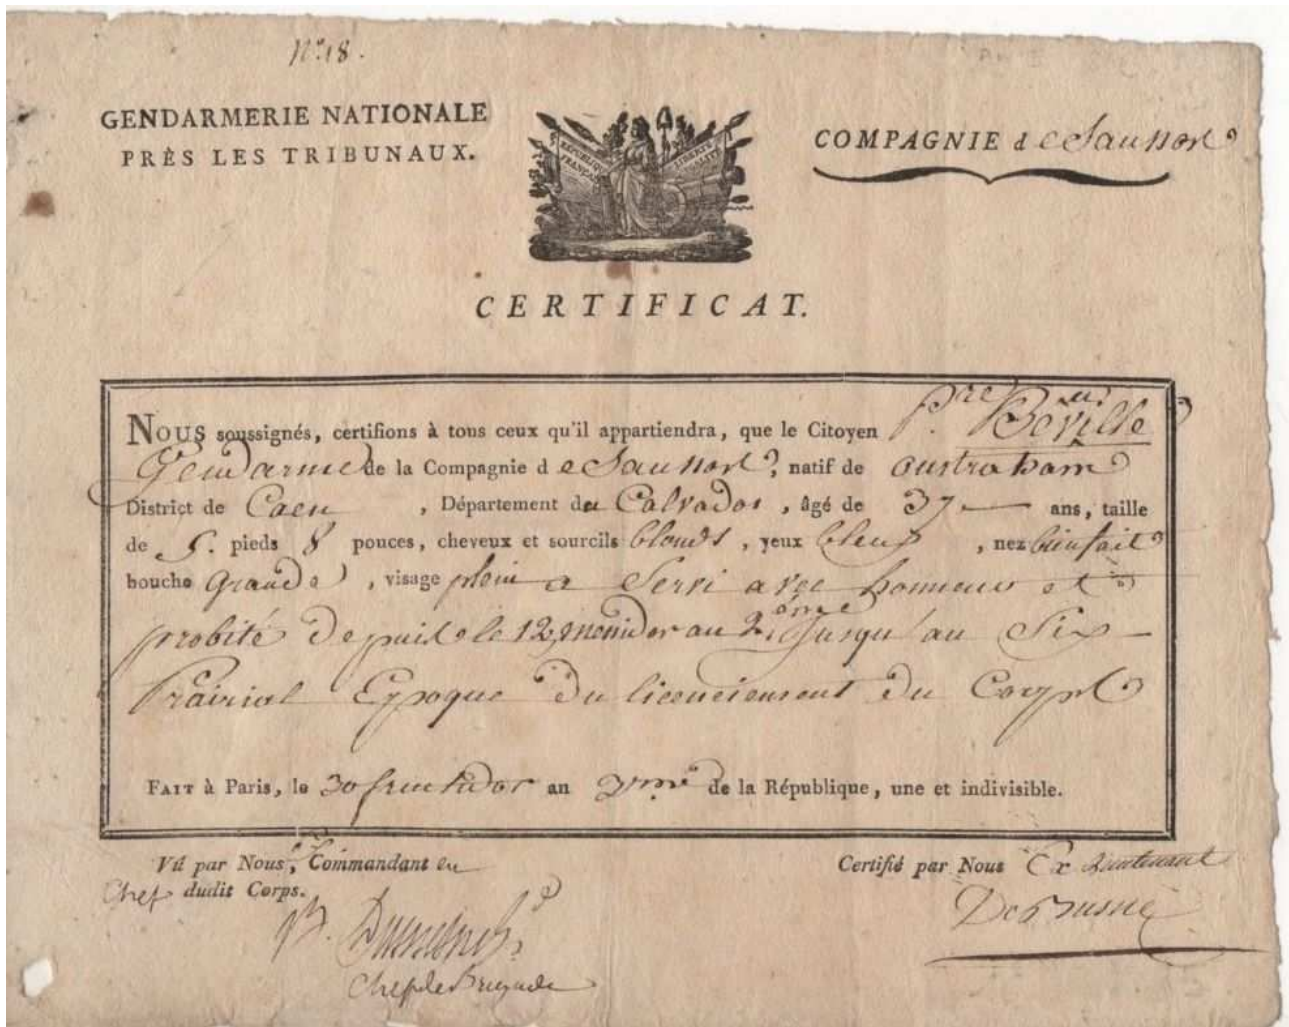 N.º 18.
GENDARMERIE NATIONALE
PRÈS LES TRIBUNAUX.
RÉPUBLIQUE FRANÇ.
LIBERTÉ ÉGALITÉ
COMPAGNIE de
CERTIFICAT.
NOUS soussignés, certifions à tous ceux qu'il appartiendra, que le Citoyen P.re Béville
Gendarme de la Compagnie de , natif de oustreham
District de Caen , Département du Calvados , âgé de 37 ans, taille
de 5. pieds 8 pouces, cheveux et sourcils blonds , yeux bleus , nez bienfait
bouche Grande , visage plein a Servi avec honneur et
probité depuis le 12 au 2.ème Jusqu'au Six
Prairial Epoque du licenciement du Corps
FAIT à Paris, le 30 fructidor an 3.me de la République, une et indivisible.
Vû par Nous, Commandant en
Chef dudit Corps.
Certifié par Nous Ex Lieutenant
Chef de Brigade